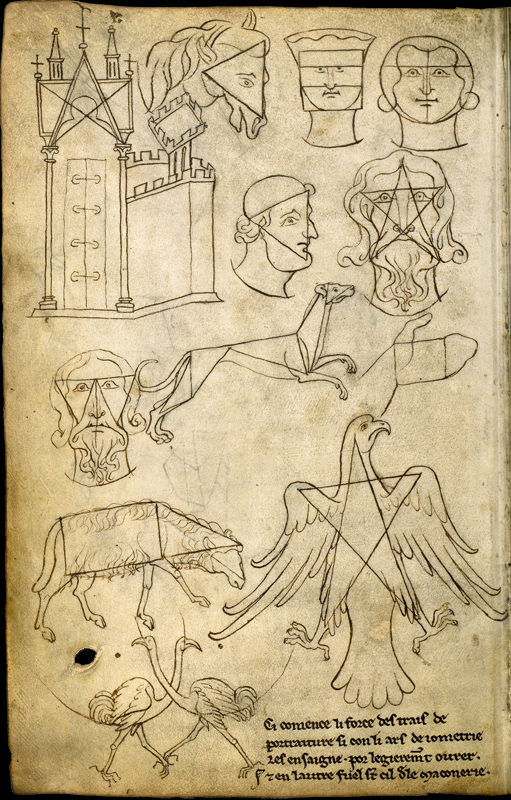 Ci comence li force des trais de
portraiture si con li ars de iometrie
les ensaigne · por legieremt ovrer ·
⁊ en lautre fuel st cil dle maconerie ·